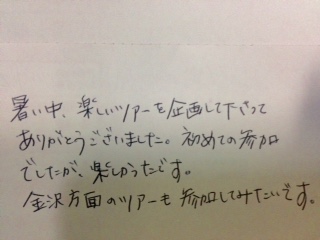 暑い中、楽しいツアーを企画して下さって
ありがとうございました。初めての参加
でしたが、楽しかったです。
金沢方面のツアーも参加してみたいです。